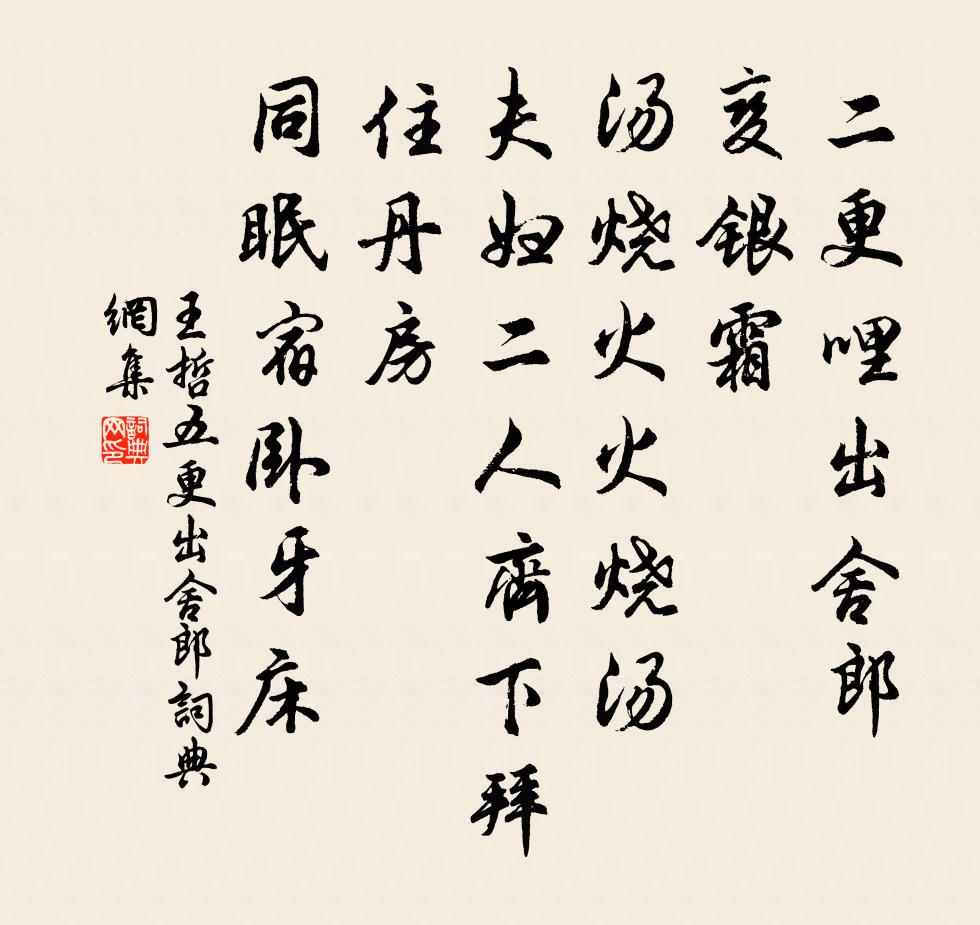 二更哩出舍郎
变银霜
汤烧火火烧汤
夫妇二人齊下拜
住丹房
同眠宿卧牙床
王哲五更出舍郎詞典
網集
詞典网印